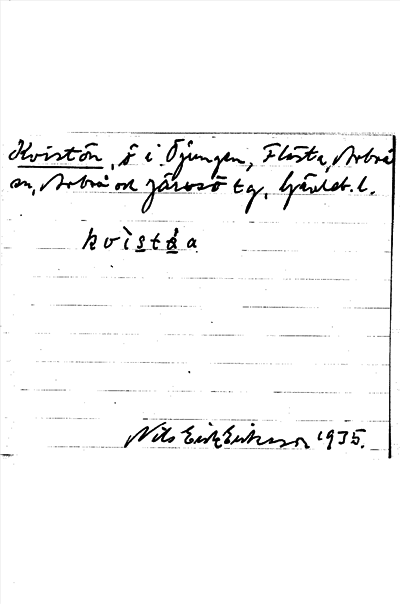 Kvistön, ö i Öjungen, Flästa, Arbrå
sn, Arbrå och Järvsö tg, Gävleb. l.
kvistöa
Nils Erik Eriksson 1935.